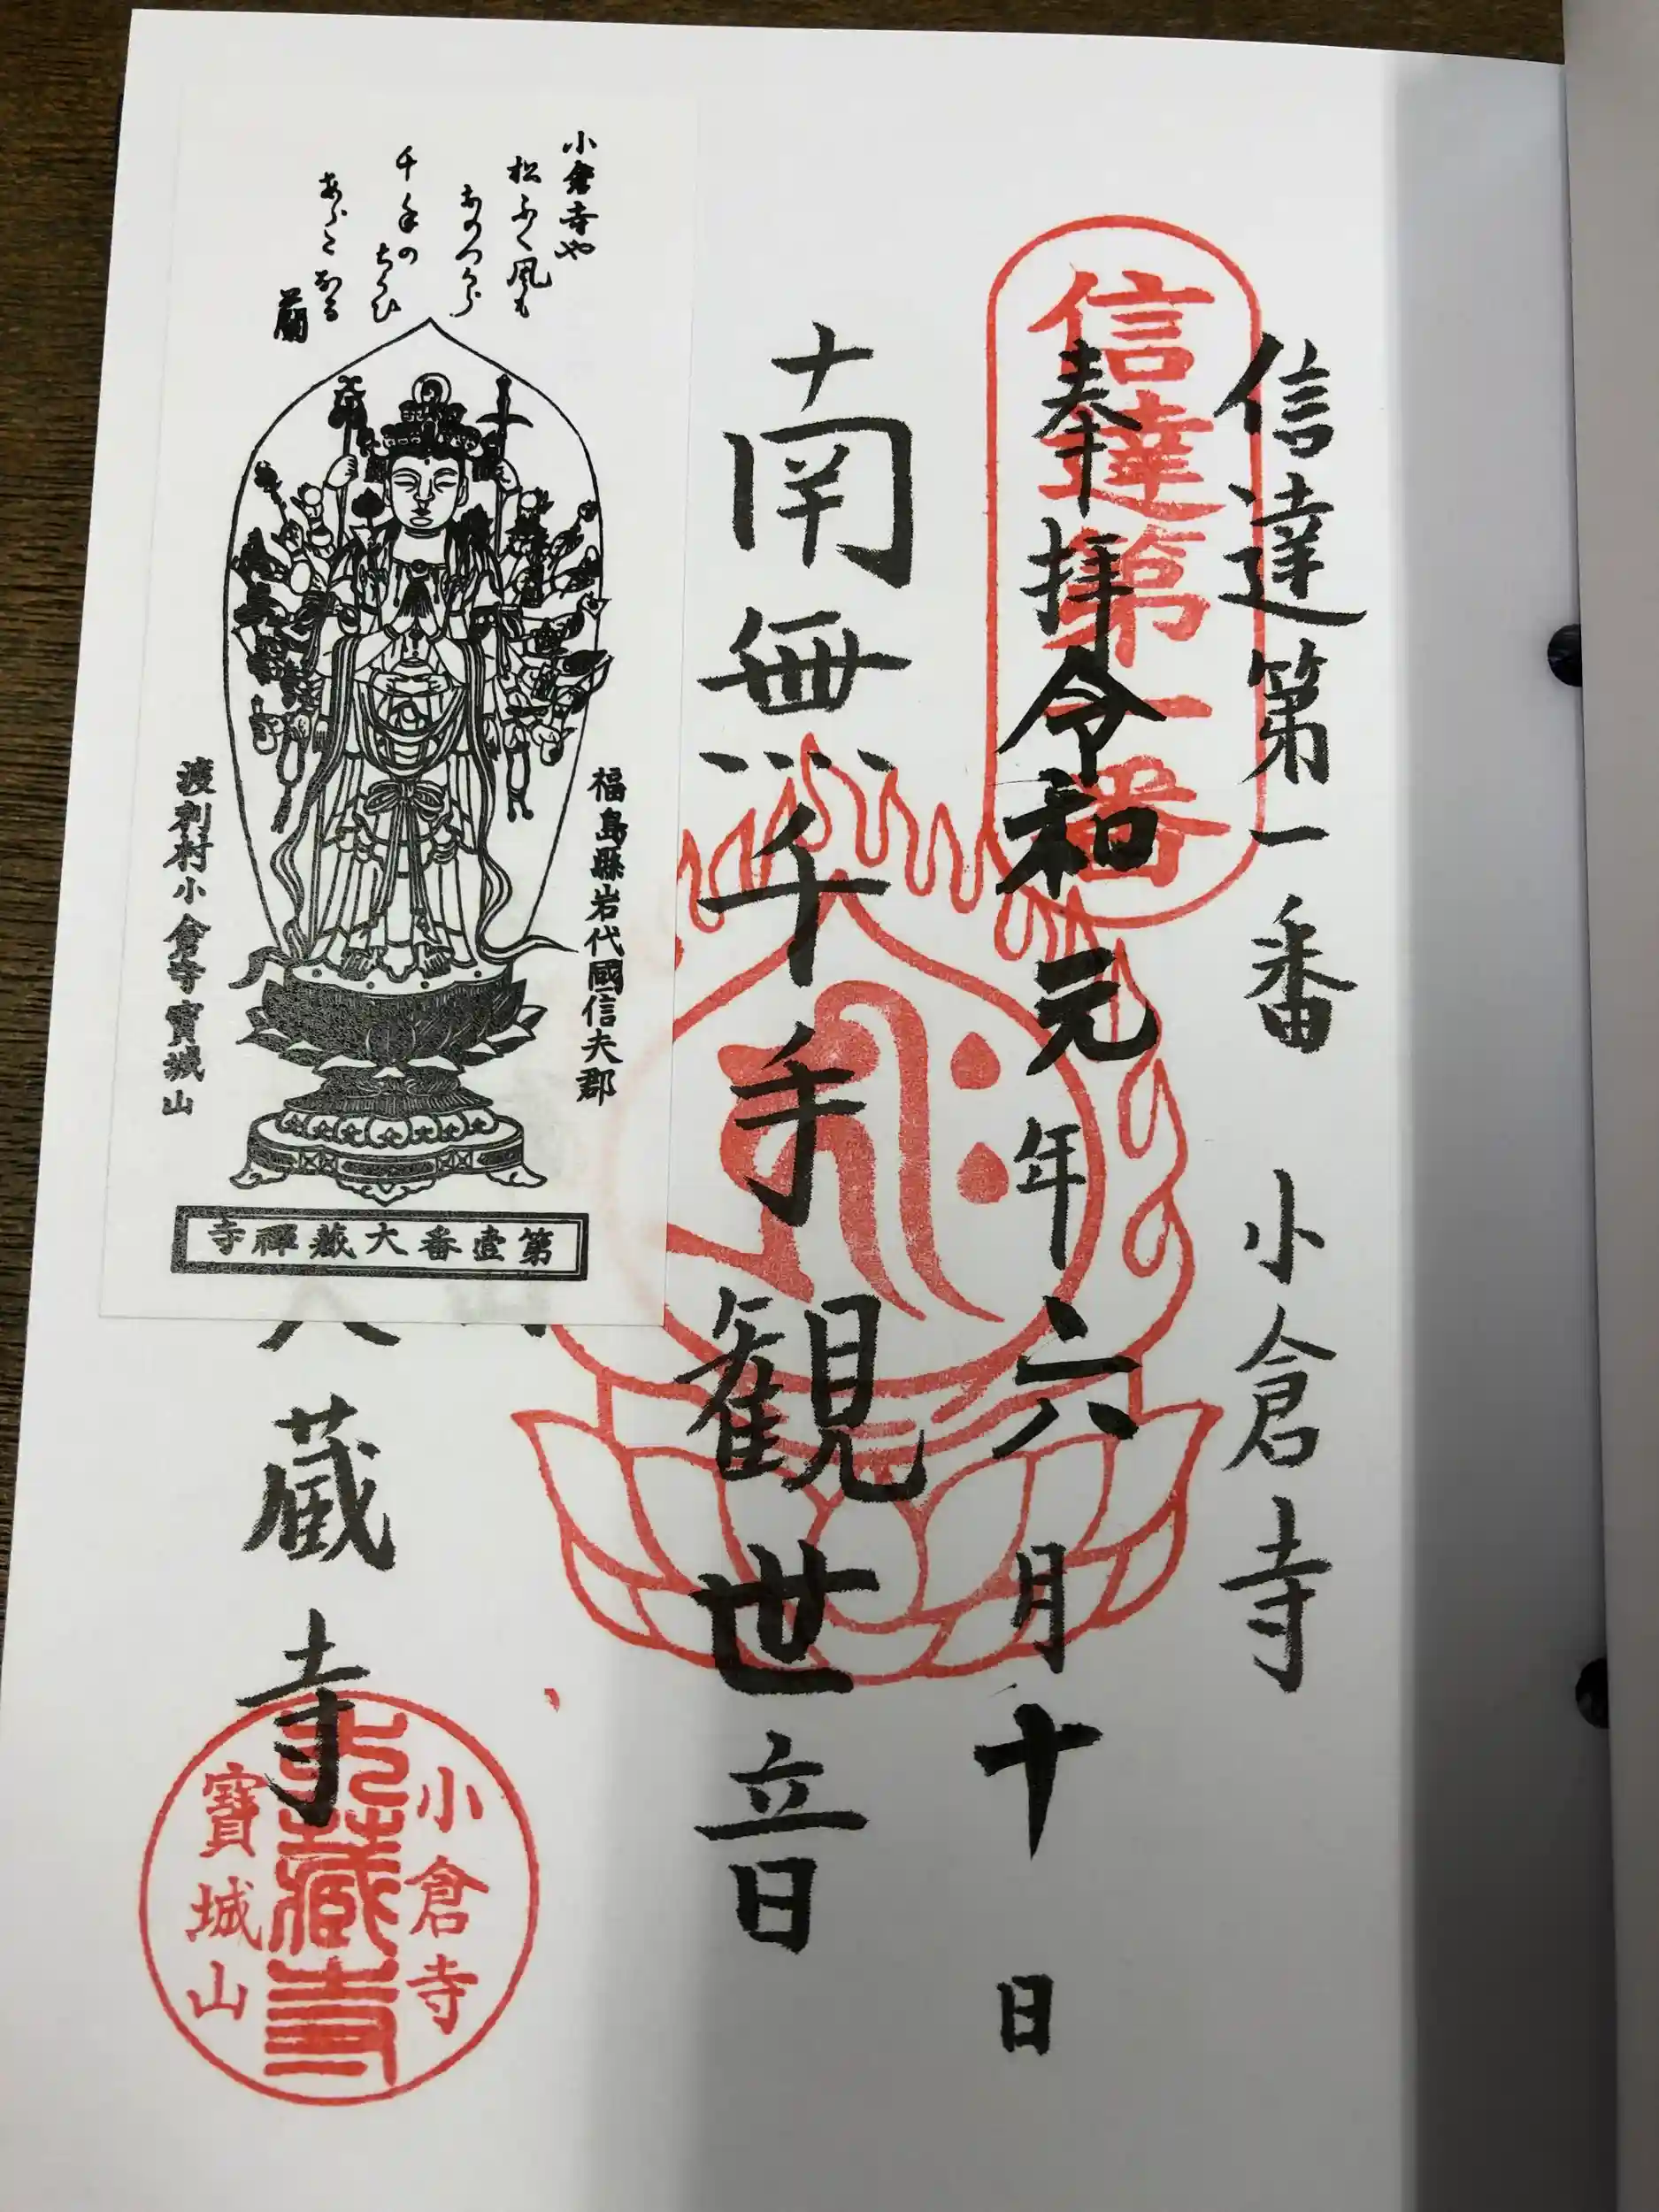 信達第一番　小倉寺
信達第一番
奉拝　令和元年六月十日
南無千手観世音
大蔵寺
小倉寺
大蔵寺
寶城山
小倉寺や
松ふく風も
おのつから
千手のちかひ
あらたなる
福島縣岩代國信夫郡
渡利村小倉寺寶城山
第壹番大藏禪寺